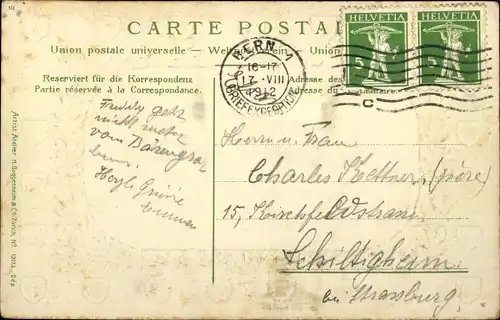 CARTE POSTAL
Union postale universelle – Weltpostverein – Union
Reserviert für die Korrespondenz
Partie réservée à la Correspondance.
Adresse des
Adresse du
HELVETIA
5
HELVETIA
5
BERN 1
16-17
17·VIII
1912
BRIEFEXPEDITION
C
Freddy geht
nicht mehr
vom Bärengraben
Herrn u. Frau
Charles Kettner, (père)
15, Kirchfeldstrasse
Schiltigheim
bei Strassburg